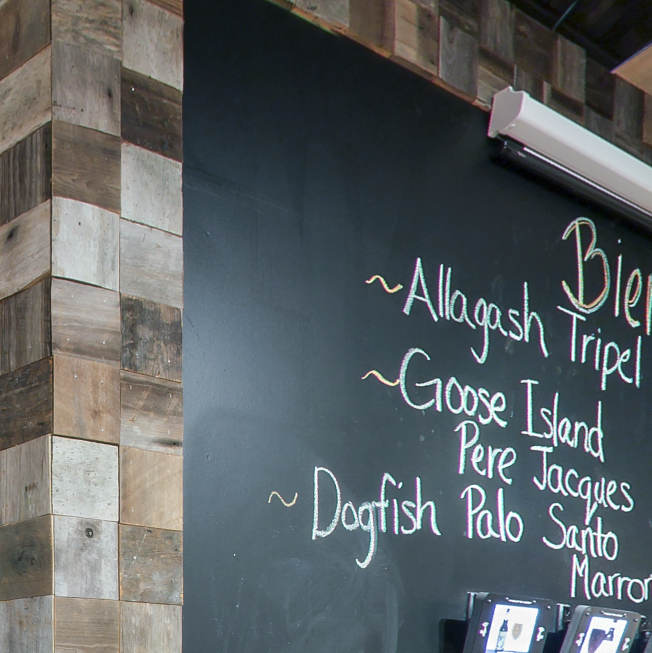 Bier
~Allagash Tripel
~Goose Island
Pere Jacques
~Dogfish Palo Santo
Marron